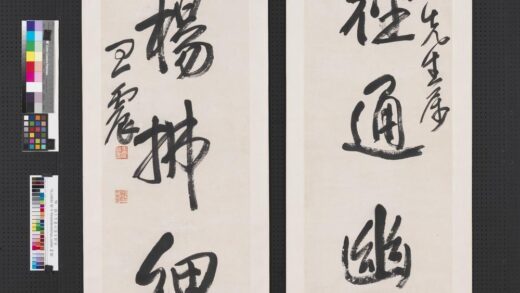 先生属
徑通幽
楊拂細
王震